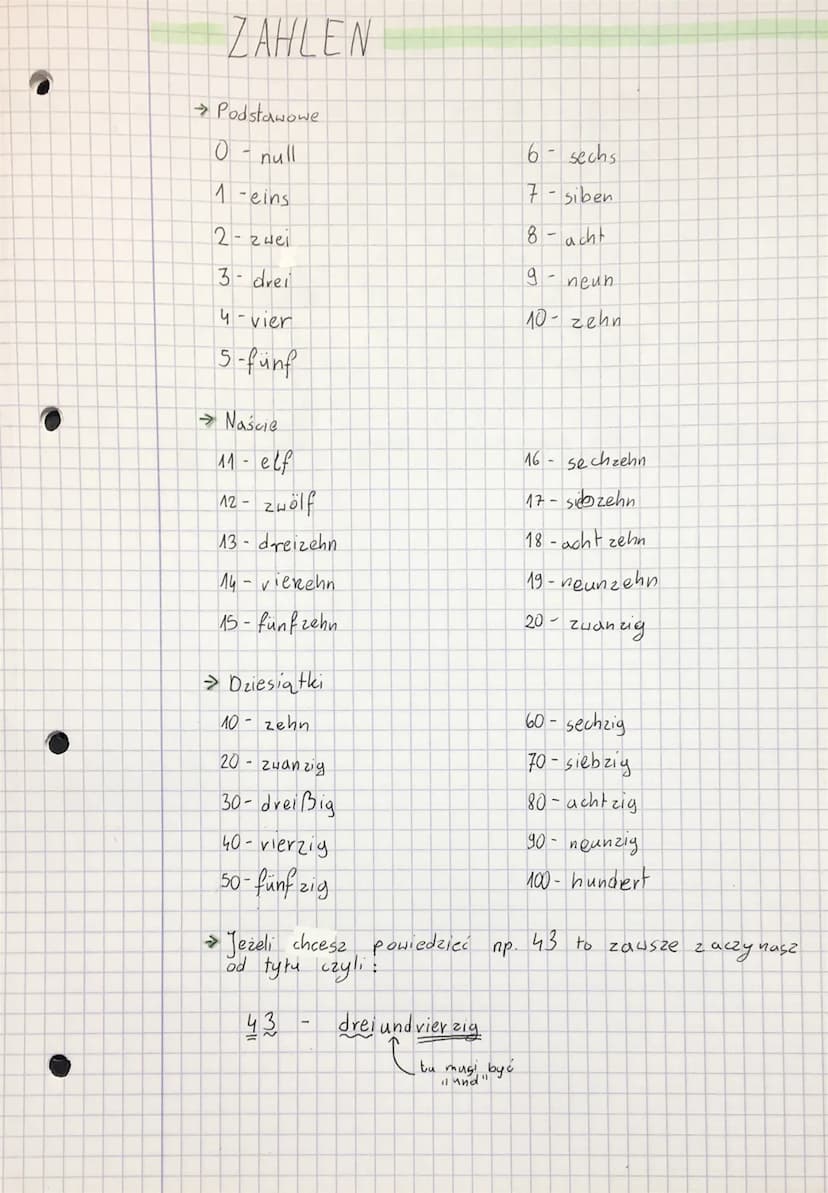 ZAHLEN
→ Podstawowe
0 - null
1 - eins
2 - zwei
3 - drei
4 - vier
5 - fünf
6 - sechs
7 - siben
8 - acht
9 - neun
10 - zehn
→ Naście
11 - elf
12 - zwölf
13 - dreizehn
14 - vierzehn
15 - fünfzehn
16 - sechzehn
17 - siebzehn
18 - achtzehn
19 - neunzehn
20 - zwanzig
→ Dziesiątki
10 - zehn
20 - zwanzig
30 - dreißig
40 - vierzig
50 - fünfzig
60 - sechzig
70 - siebzig
80 - achtzig
90 - neunzig
100 - hundert
→ Jeżeli chcesz powiedzieć np. 43 to zawsze zaczynasz
od tyłu czyli:
43 - dreiundvierzig
tu musi być
"und"